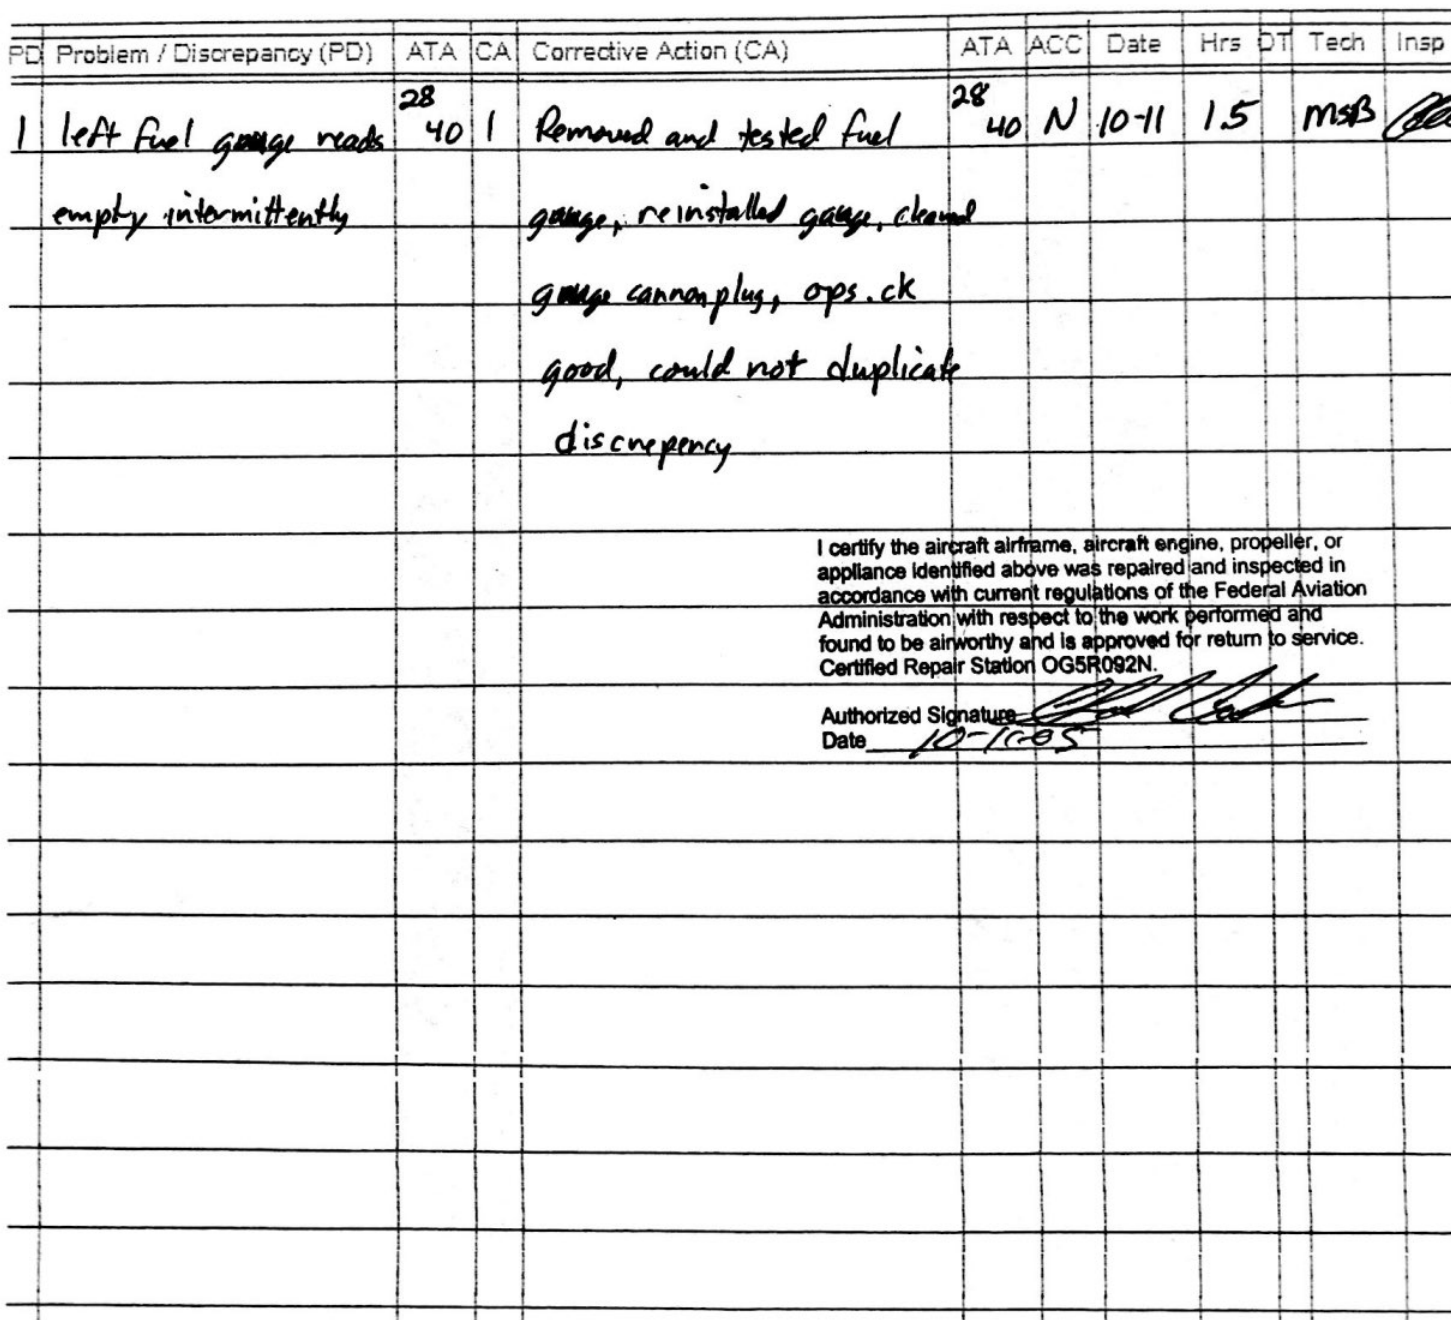 PD Problem / Discrepancy (PD) ATA CA Corrective Action (CA) ATA ACC Date Hrs OT Tech Insp
28 28
1 left fuel gauge reads 40 1 Removed and tested fuel 40 N 10-11 1.5 MSB
empty intermittently gauge, reinstalled gauge, cleaned
gauge cannon plug, ops. ck
good, could not duplicate
discrepency
I certify the aircraft airframe, aircraft engine, propeller, or
appliance identified above was repaired and inspected in
accordance with current regulations of the Federal Aviation
Administration with respect to the work performed and
found to be airworthy and is approved for return to service.
Certified Repair Station OG5R092N.
Authorized Signature
Date 10-11-05